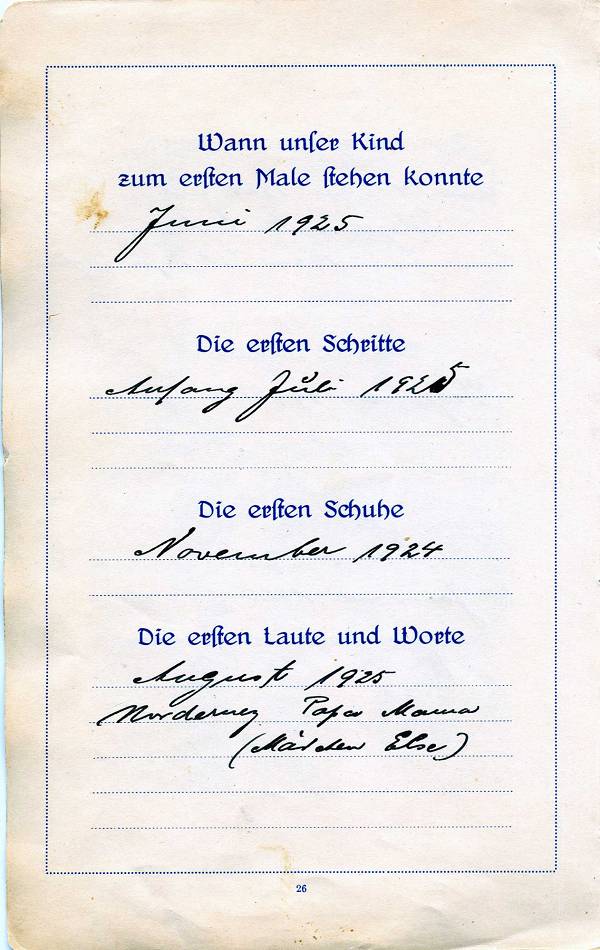 Wann unser Kind
zum ersten Male stehen konnte
Juni 1925
Die ersten Schritte
Anfang Juli 1925
Die ersten Schuhe
November 1924
Die ersten Laute und Worte
August 1925
Norderney Papa Mama
(Mädchen Else)
26